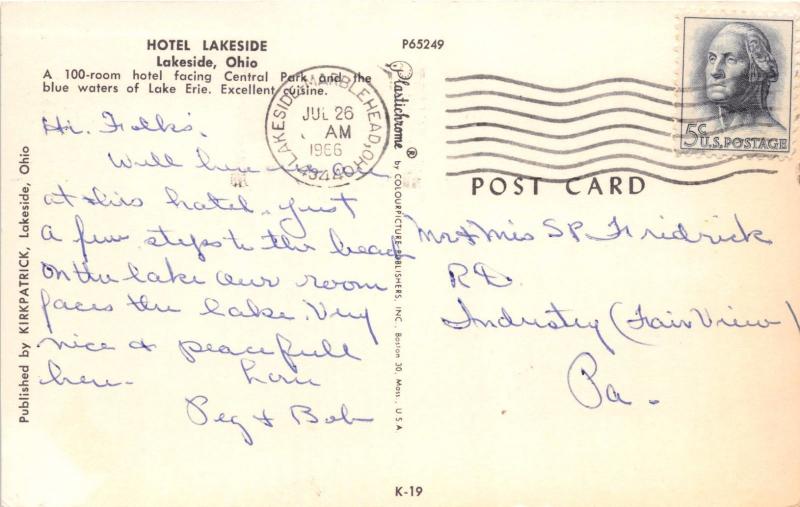 HOTEL LAKESIDE
Lakeside, Ohio
A 100-room hotel facing Central Park and the
blue waters of Lake Erie. Excellent cuisine.
P65249
LAKESIDE-MARBLEHEAD, OH
JUL 26
AM
1966
43440
5¢
U.S. POSTAGE
POST CARD
Plastichrome ®
by COLOURPICTURE PUBLISHERS, INC. Boston 30, Mass., U.S.A
Published by KIRKPATRICK, Lakeside, Ohio
Hi. Folks.
Well here we
at this hotel. just
a few steps to the beach
on the lake our room
faces the lake. Very
nice & peacefull
here. Love
Peg & Bob
Mr & Mrs S P. Fridrick
R.D.
Industry (Fair View)
Pa.
K-19